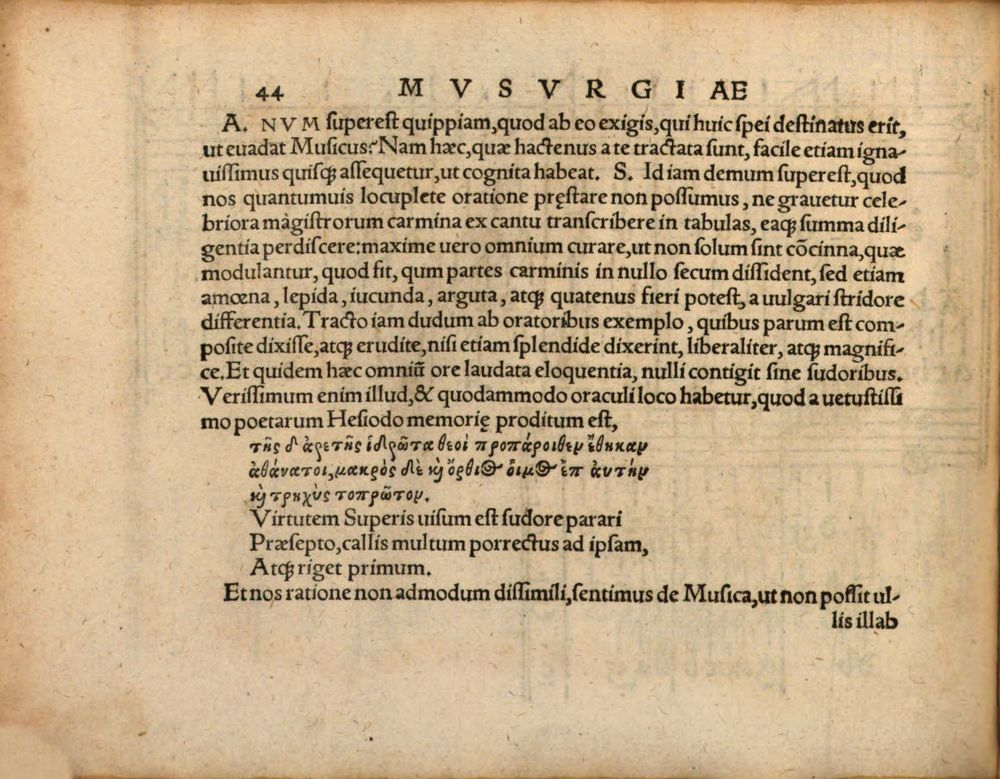 44 MVSVRGIAE
A. NVM superest quippiam, quod ab eo exigis, qui huic spei destinatus erit,
ut euadat Musicus? Nam hæc, quæ hactenus a te tractata sunt, facile etiam igna-
uissimus quisqꝫ assequetur, ut cognita habeat. S. Id iam demum superest, quod
nos quantumuis locuplete oratione pręstare non possumus, ne grauetur cele-
briora magistrorum carmina ex cantu transcribere in tabulas, eaqꝫ summa dili-
gentia perdiscere: maxime uero omnium curare, ut non solum sint cõcinna, quæ
modulantur, quod fit, qum partes carminis in nullo secum dissident, sed etiam
amœna, lepida, iucunda, arguta, atqꝫ quatenus fieri potest, a uulgari stridore
differentia. Tracto iam dudum ab oratoribus exemplo, quibus parum est com-
posite dixisse, atqꝫ erudite, nisi etiam splendide dixerint, liberaliter, atqꝫ magnifi-
ce. Et quidem hæc omniũ ore laudata eloquentia, nulli contigit sine sudoribus.
Verissimum enim illud, & quodammodo oraculi loco habetur, quod a uetustissi
mo poetarum Hesiodo memorię proditum est,
τῆς δ ἀρετῆς ἱδρῶτα θεοὶ προπάροιθεν ἔθηκαν
ἀθάνατοι, μακρὸς δὲ ϗ ὄρθιος οἶμος ἔπ ἀυτὴν
ϗ τρηχὺς τοπρῶτον.
Virtutem Superis uisum est sudore parari
Præsepto, callis multum porrectus ad ipsam,
Atqꝫ riget primum.
Et nos ratione non admodum dissimili, sentimus de Musica, ut non possit ul-
lis illab